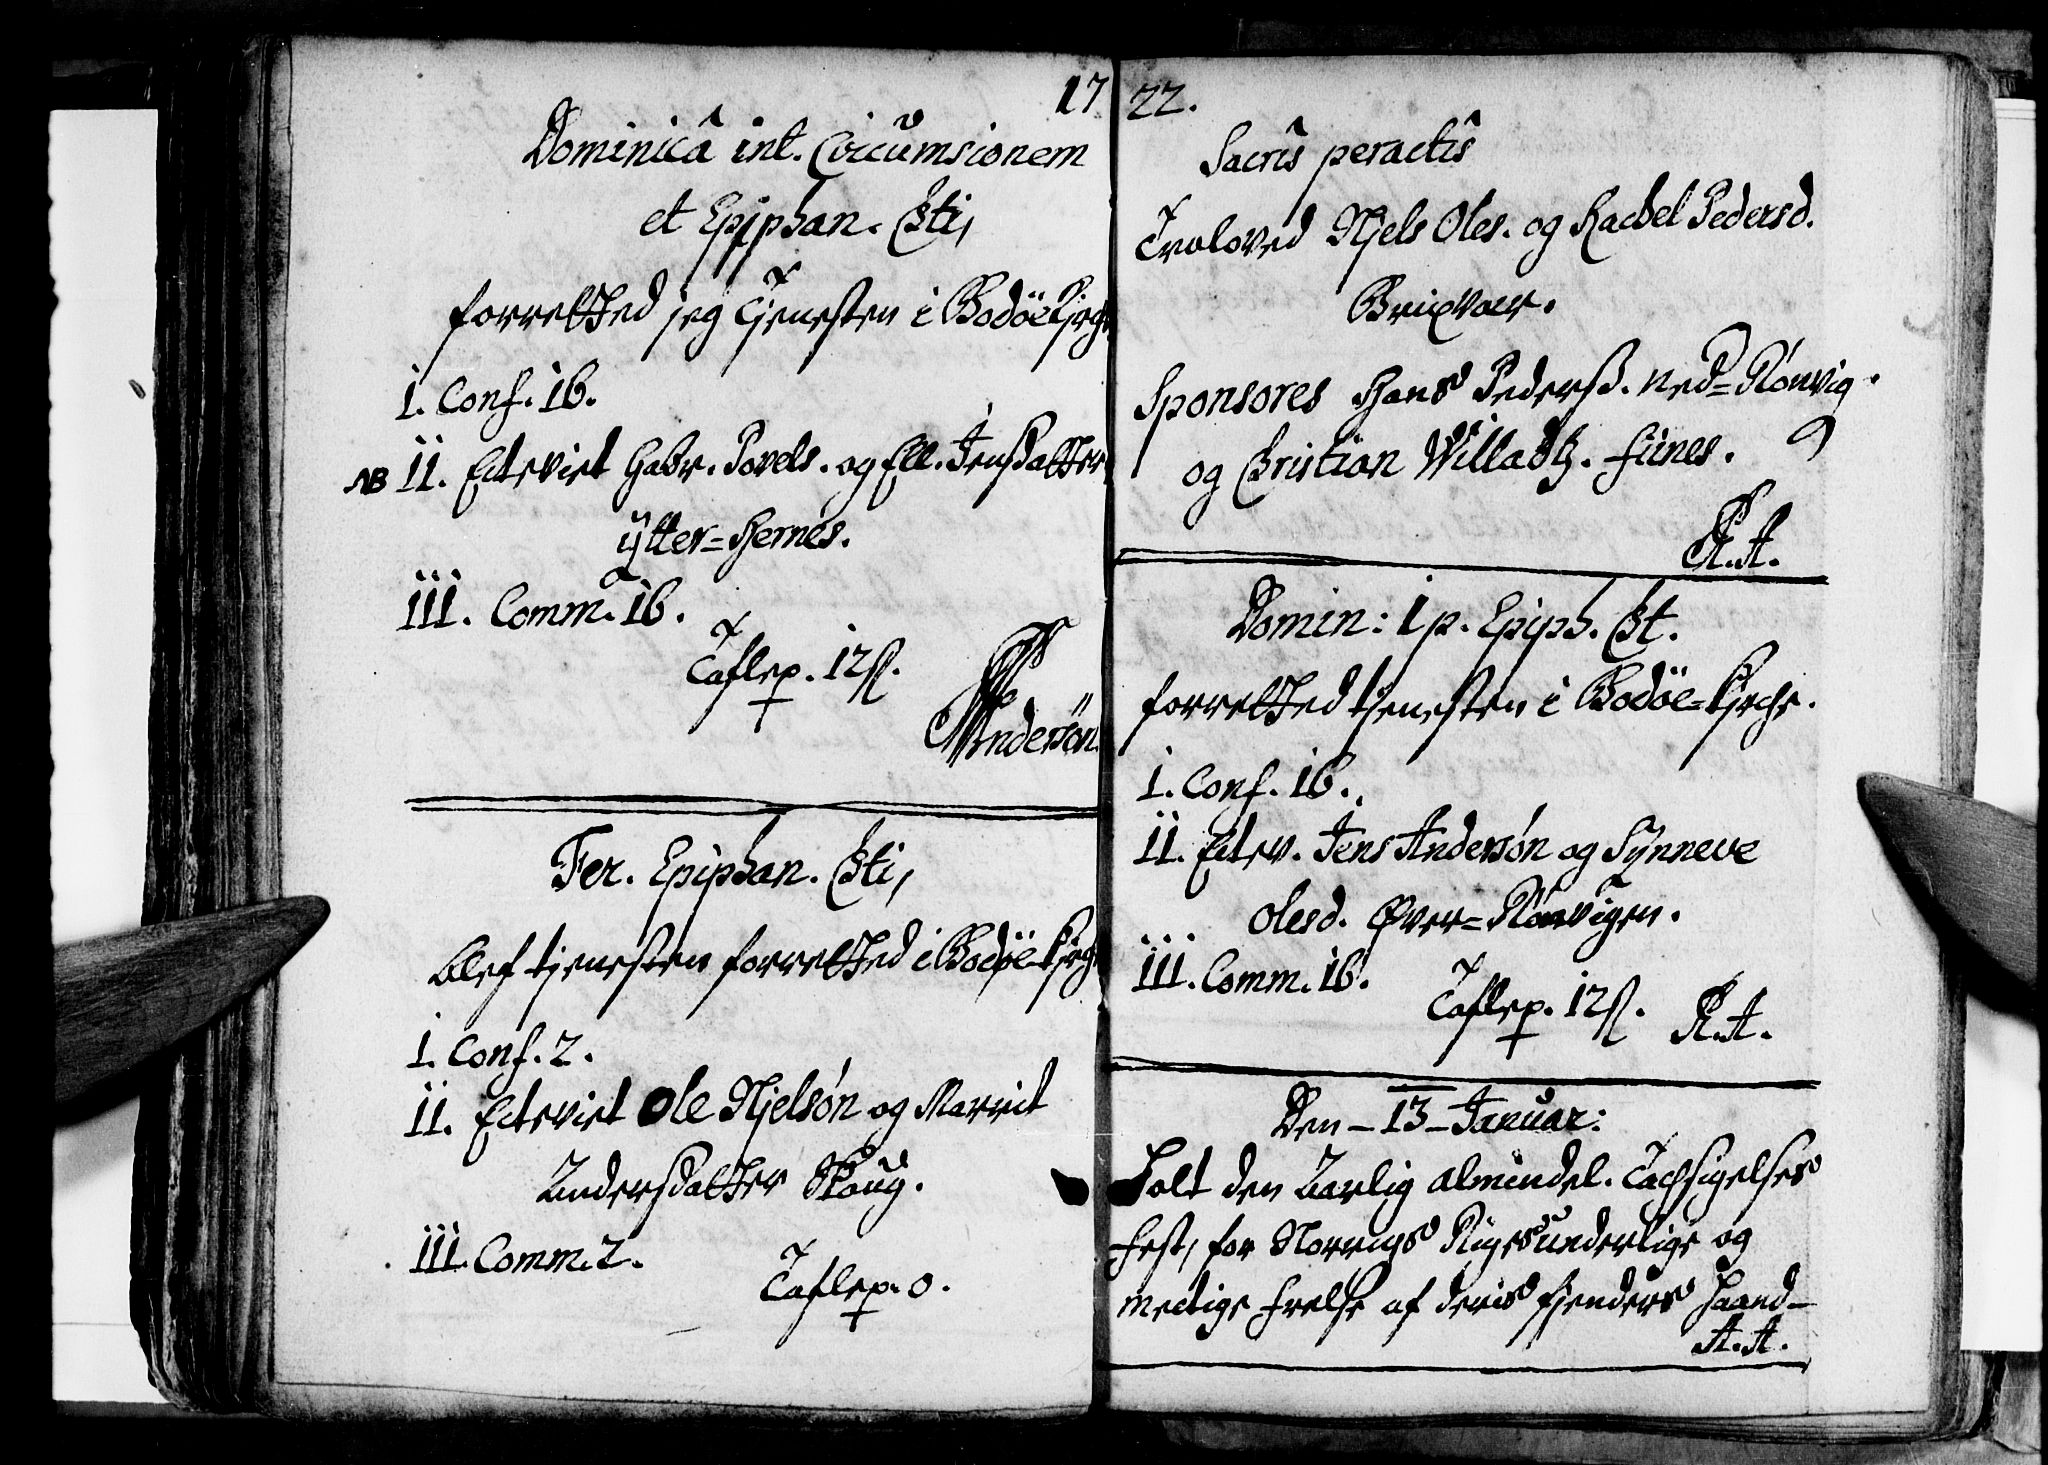 17
Dominicâ int. Circumsionem
et Epiphan. Χsti,
forretted jeg Tjenesten i Bodöe Kjrch
I. Conf. 16.
NB II. Ectevict Gabr. Povels. og Ell. Jensdatter
ÿtter=Hernes.
III. Comm. 16.
Taflep. 12ß.
Andersön
Fer. Epiphan. Χsti,
blef tjenesten forretted i Bodöe Kjrch
I. Conf. 2.
II. Ectevict Ole Njelsón og Marrit
Andersdatter Skaug.
III. Comm. 2.
Taflep. 0.
22.
Sacrîs peractîs
Troloved Njels Oles. og Rachel Pedersd.
Brixvær.
Sponsores Hans Pederß. Ned=Rónvig.
og Christian Willadtz. Fiines.
A.A.
Domin: 1 p. Epiph. Χst.
forretted tjenesten i Bodöe=Kjrche.
I. Conf. 16.
II. Ectev. Jens Andersón og Sÿnneve
Olesd. Øver=Rónvigen.
III. Comm. 16.
Taflep. 12ß.
A.A.
Den - 13 - Januar:
Holt den Aarlig almindel. Tachsigelses
Fest, for Norrigs Riges underlige og
mectige Frelse af deris fjenders Haand-
A.A.